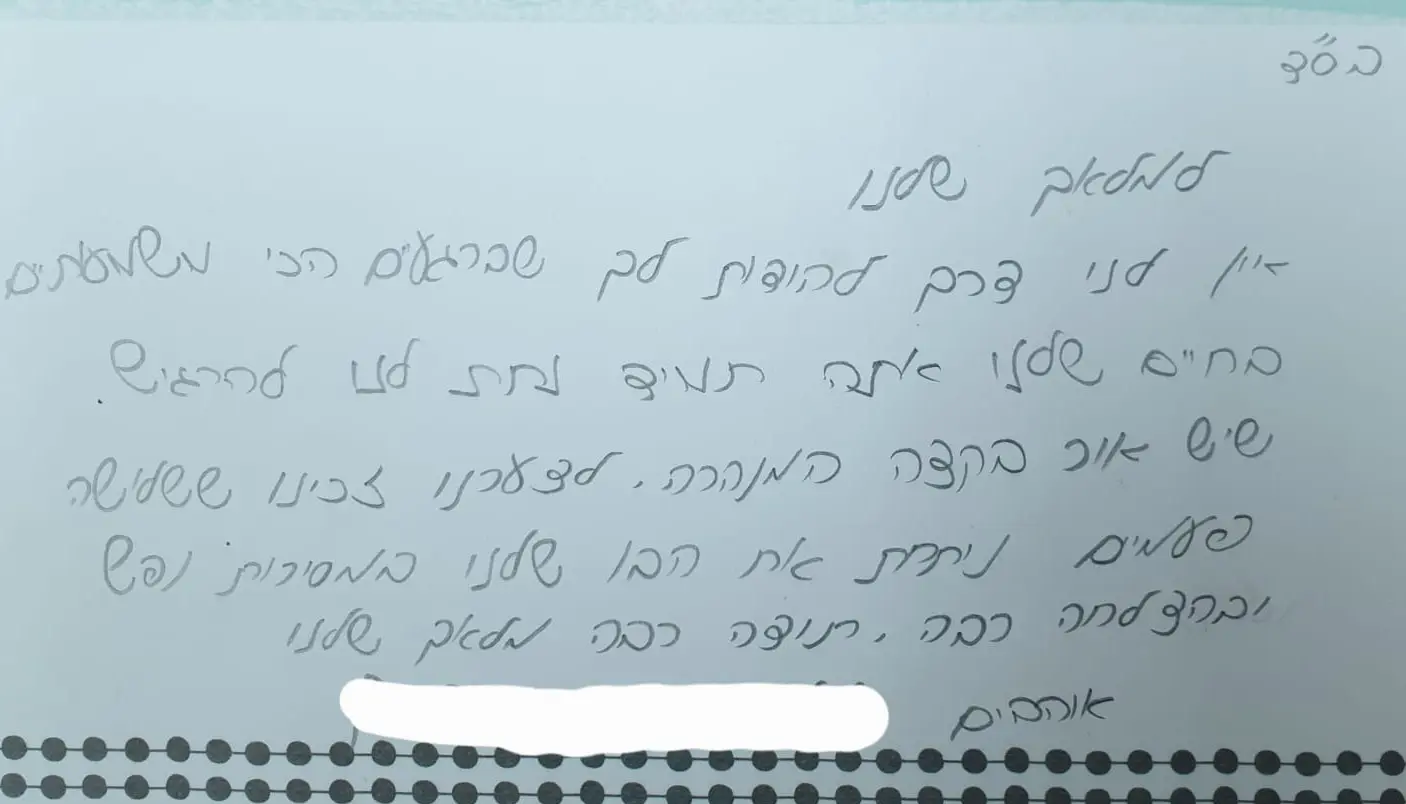 בס"ד
למלאך שלנו
אין לנו דרך להודות לך שברגעים הכי משמעותים
בחיים שלנו אתה תמיד נתת לנו להרגיש
שיש אור בקצה המנהרה. לצערנו זכינו ששלישה
פעמים ניתחת את הבן שלנו במסירות נפש
ובהצלחה רבה. תודה רבה מלאך שלנו
אוהבים